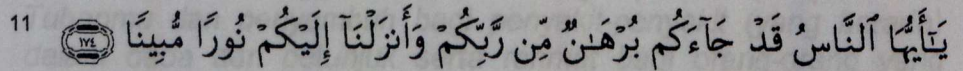 11 يَـٰٓأَيُّهَا ٱلنَّاسُ قَدْ جَآءَكُم بُرْهَـٰنٌ مِّن رَّبِّكُمْ وَأَنزَلْنَآ إِلَيْكُمْ نُورًا مُّبِينًا ١٧٤